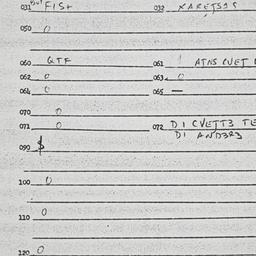 031 FISt 032
050 0
060 GTF 061
062 0 063 0
064 0 065 —
070 0
071 0 072 DI CVETT3 TE
DI AND3R3
090 $
100 0
110 0
120 0